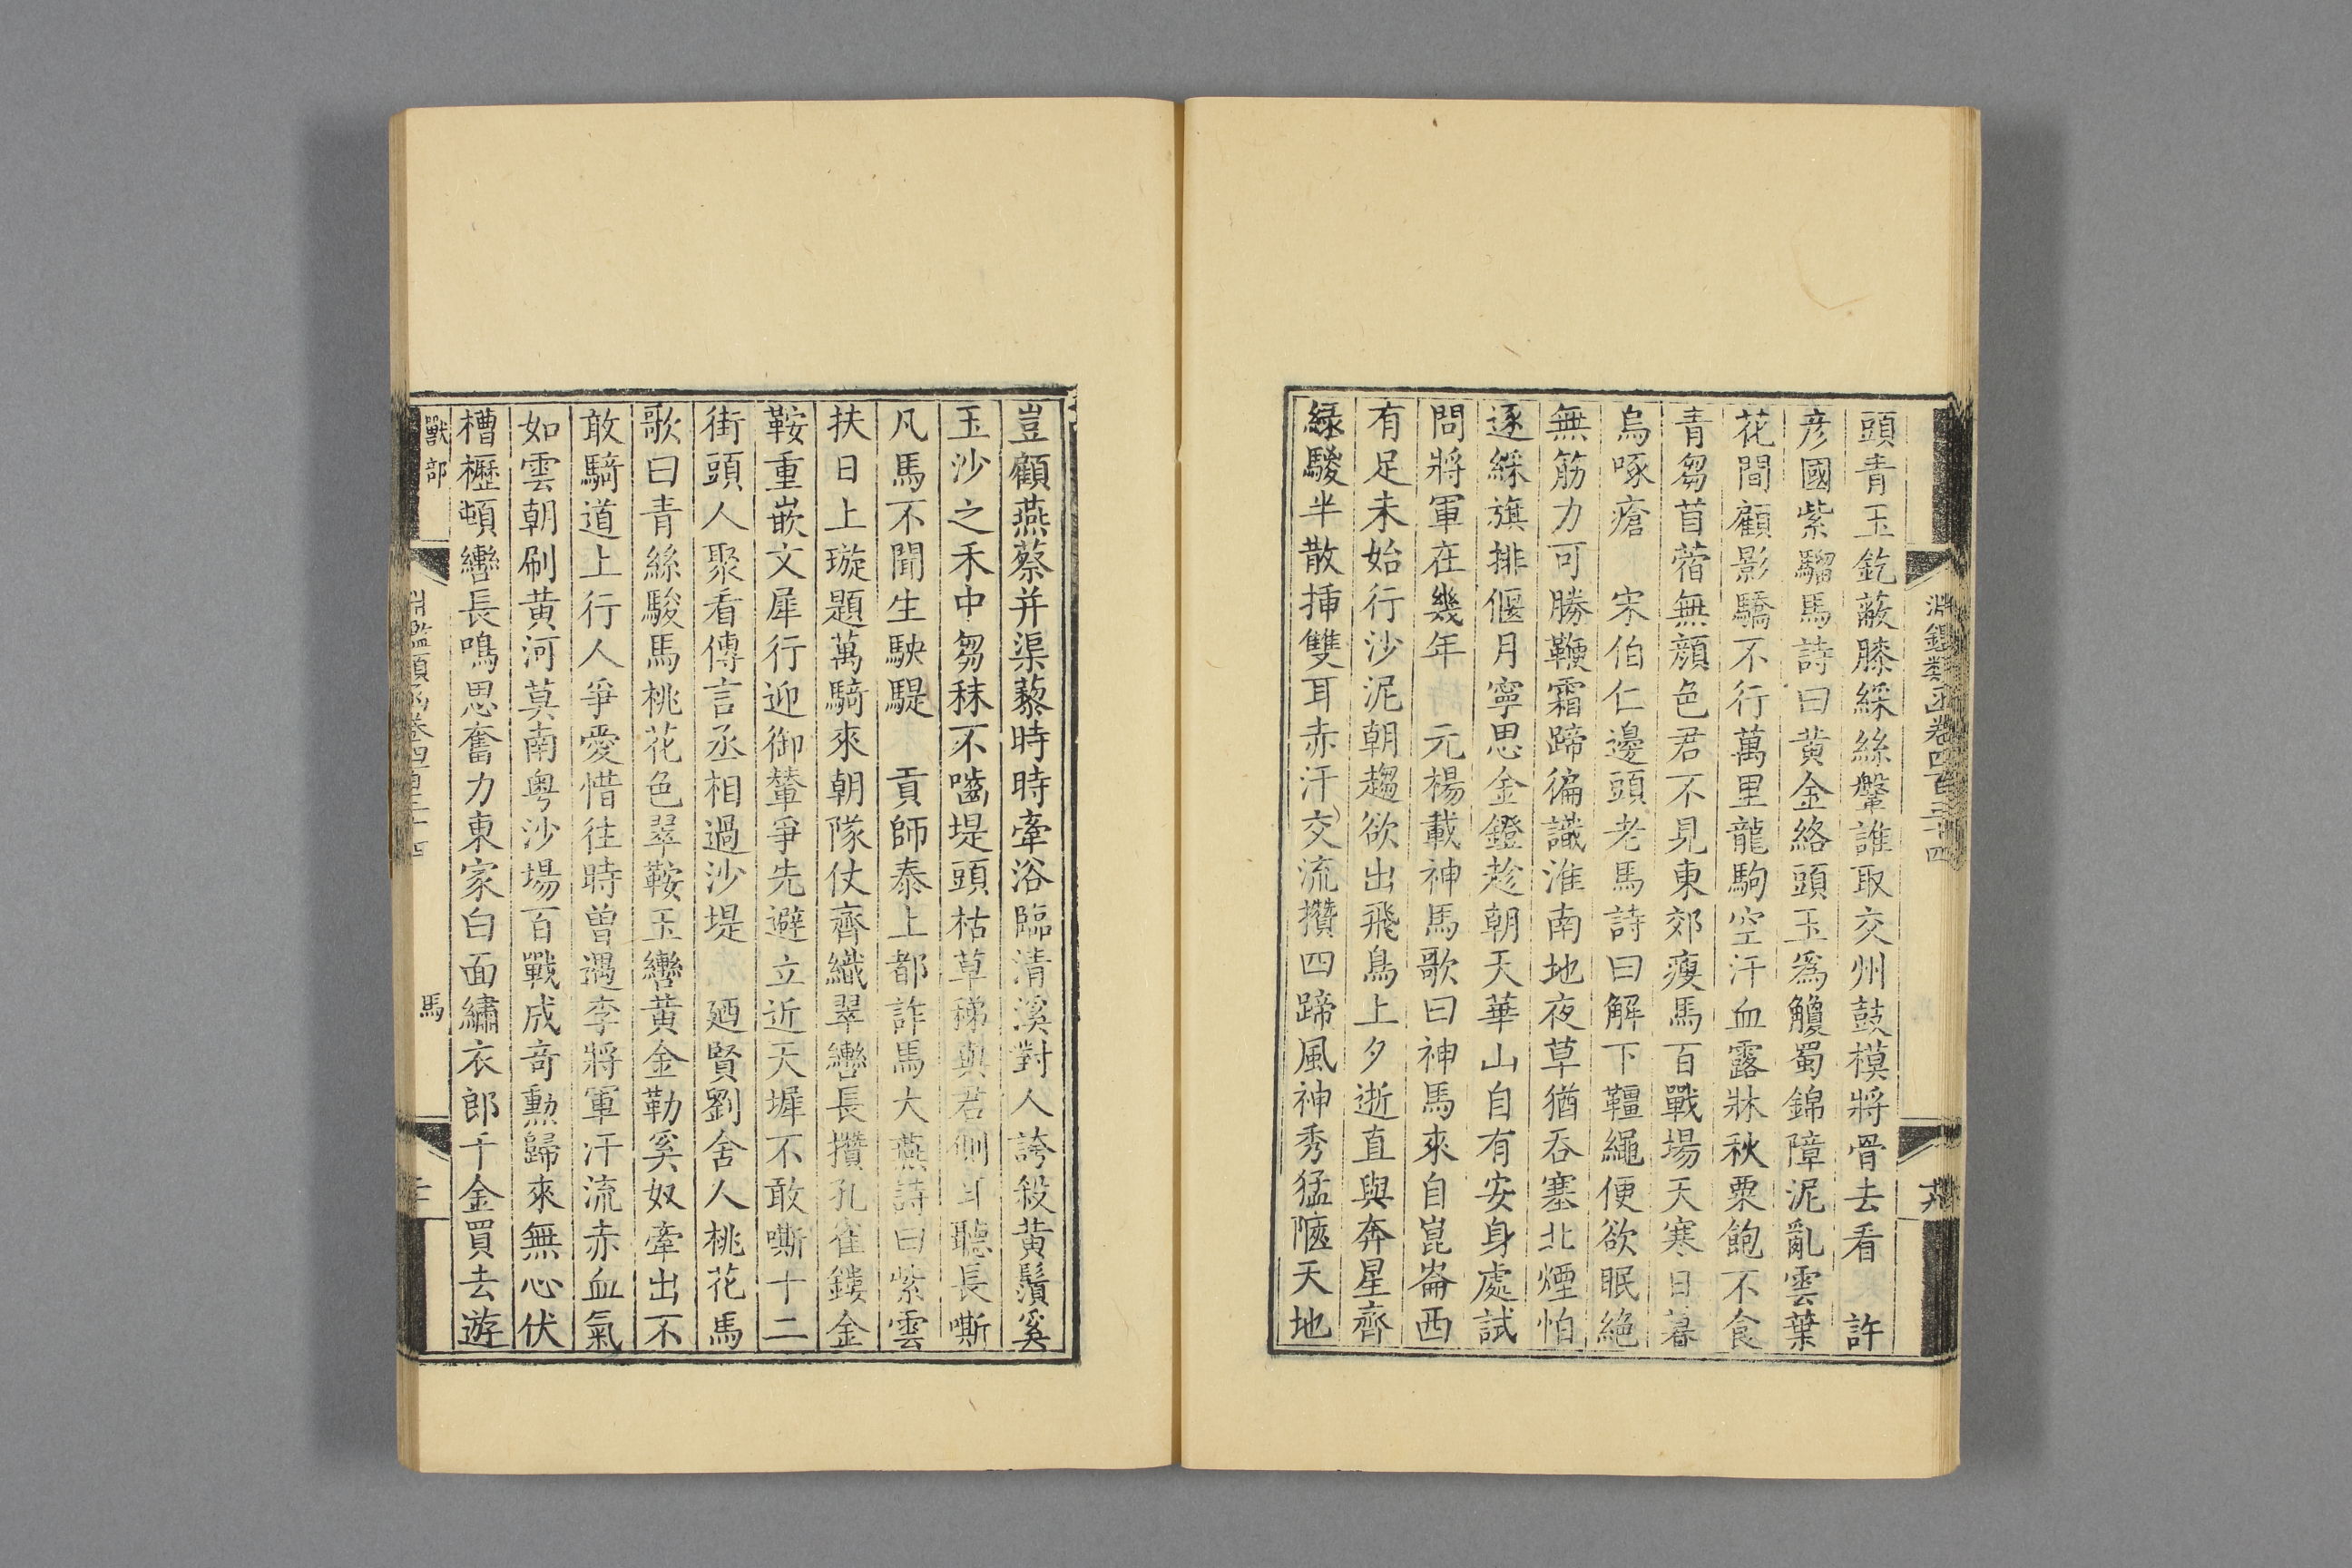 淵鑑類函卷四百三十四
頭青玉釳蔽膝綵絲鞶誰取交州鼓模將骨去看 許
彦國紫騮馬詩曰黄金絡頭玉爲觼蜀錦障泥亂雲葉
花間顧影驕不行萬里龍駒空汗血露牀秋粟飽不食
青芻苜蓿無顔色君不見東郊瘦馬百戰場天寒日暮
烏啄瘡 宋伯仁邊頭老馬詩曰解下韁繩便欲眠絶
無筋力可勝鞭霜蹄徧識淮南地夜草猶吞塞北煙怕
逐綵旗排偃月寧思金鐙趁朝天華山自有安身處試
問將軍在幾年 元楊載神馬歌曰神馬來自崑崙西
有足未始行沙泥朝趨欲出飛鳥上夕逝直與奔星齊
緑駿半散揷雙耳赤汗交流攢四蹄風神秀猛陿天地
豈顧燕蔡并渠藜時時牽浴臨清溪對人誇殺黄鬚奚
玉沙之禾中芻秣不嚙堤頭枯草稊與君側耳聽長嘶
凡馬不聞生駃騠 貢師泰上都詐馬大燕詩曰紫雲
扶日上璇題萬騎來朝隊仗齊織翠轡長攢孔雀鏤金
鞍重嵌文犀行迎御輦爭先避立近天墀不敢嘶十二
街頭人聚看傳言丞相過沙堤 廼賢劉舍人桃花馬
歌曰青絲駿馬桃花色翠鞍玉轡黄金勒奚奴牽出不
敢騎道上行人爭愛惜往時曽遇李將軍汗流赤血氣
如雲朝刷黄河莫南粤沙場百戰成竒勳歸來無心伏
槽櫪頓轡長鳴思奮力東家白面繡衣郎千金買去遊
獸部 淵鑑類函卷四百三十四 馬